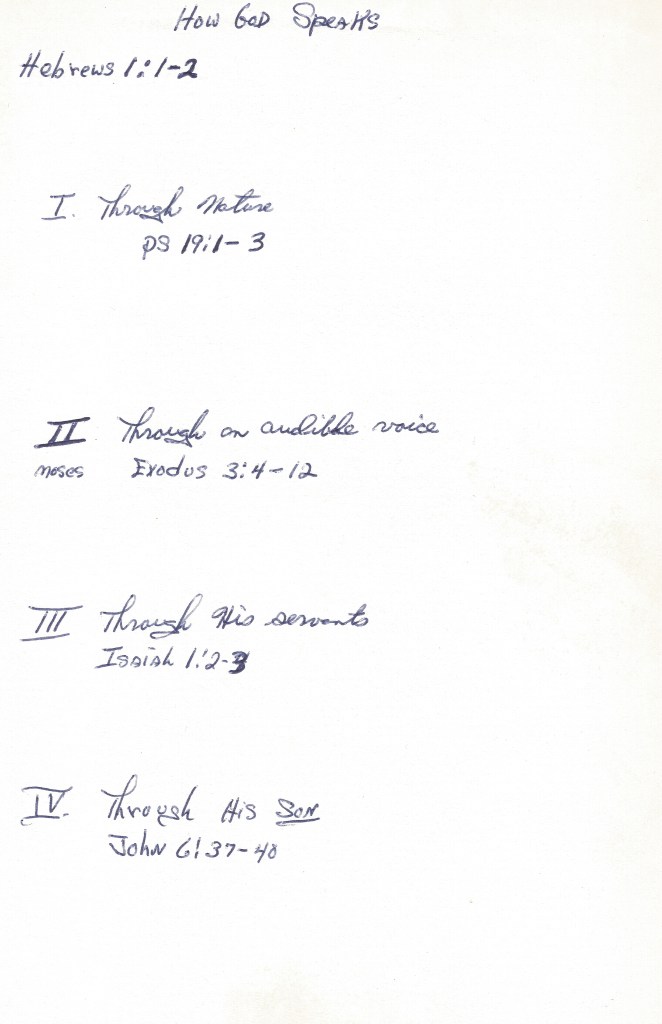 How God Speaks
Hebrews 1:1-2
I. Through Nature
PS 19:1-3
II Through an audible voice
moses Exodus 3:4-12
III Through His servants
Isaiah 1:2-3
IV. Through His Son
John 6:37-40